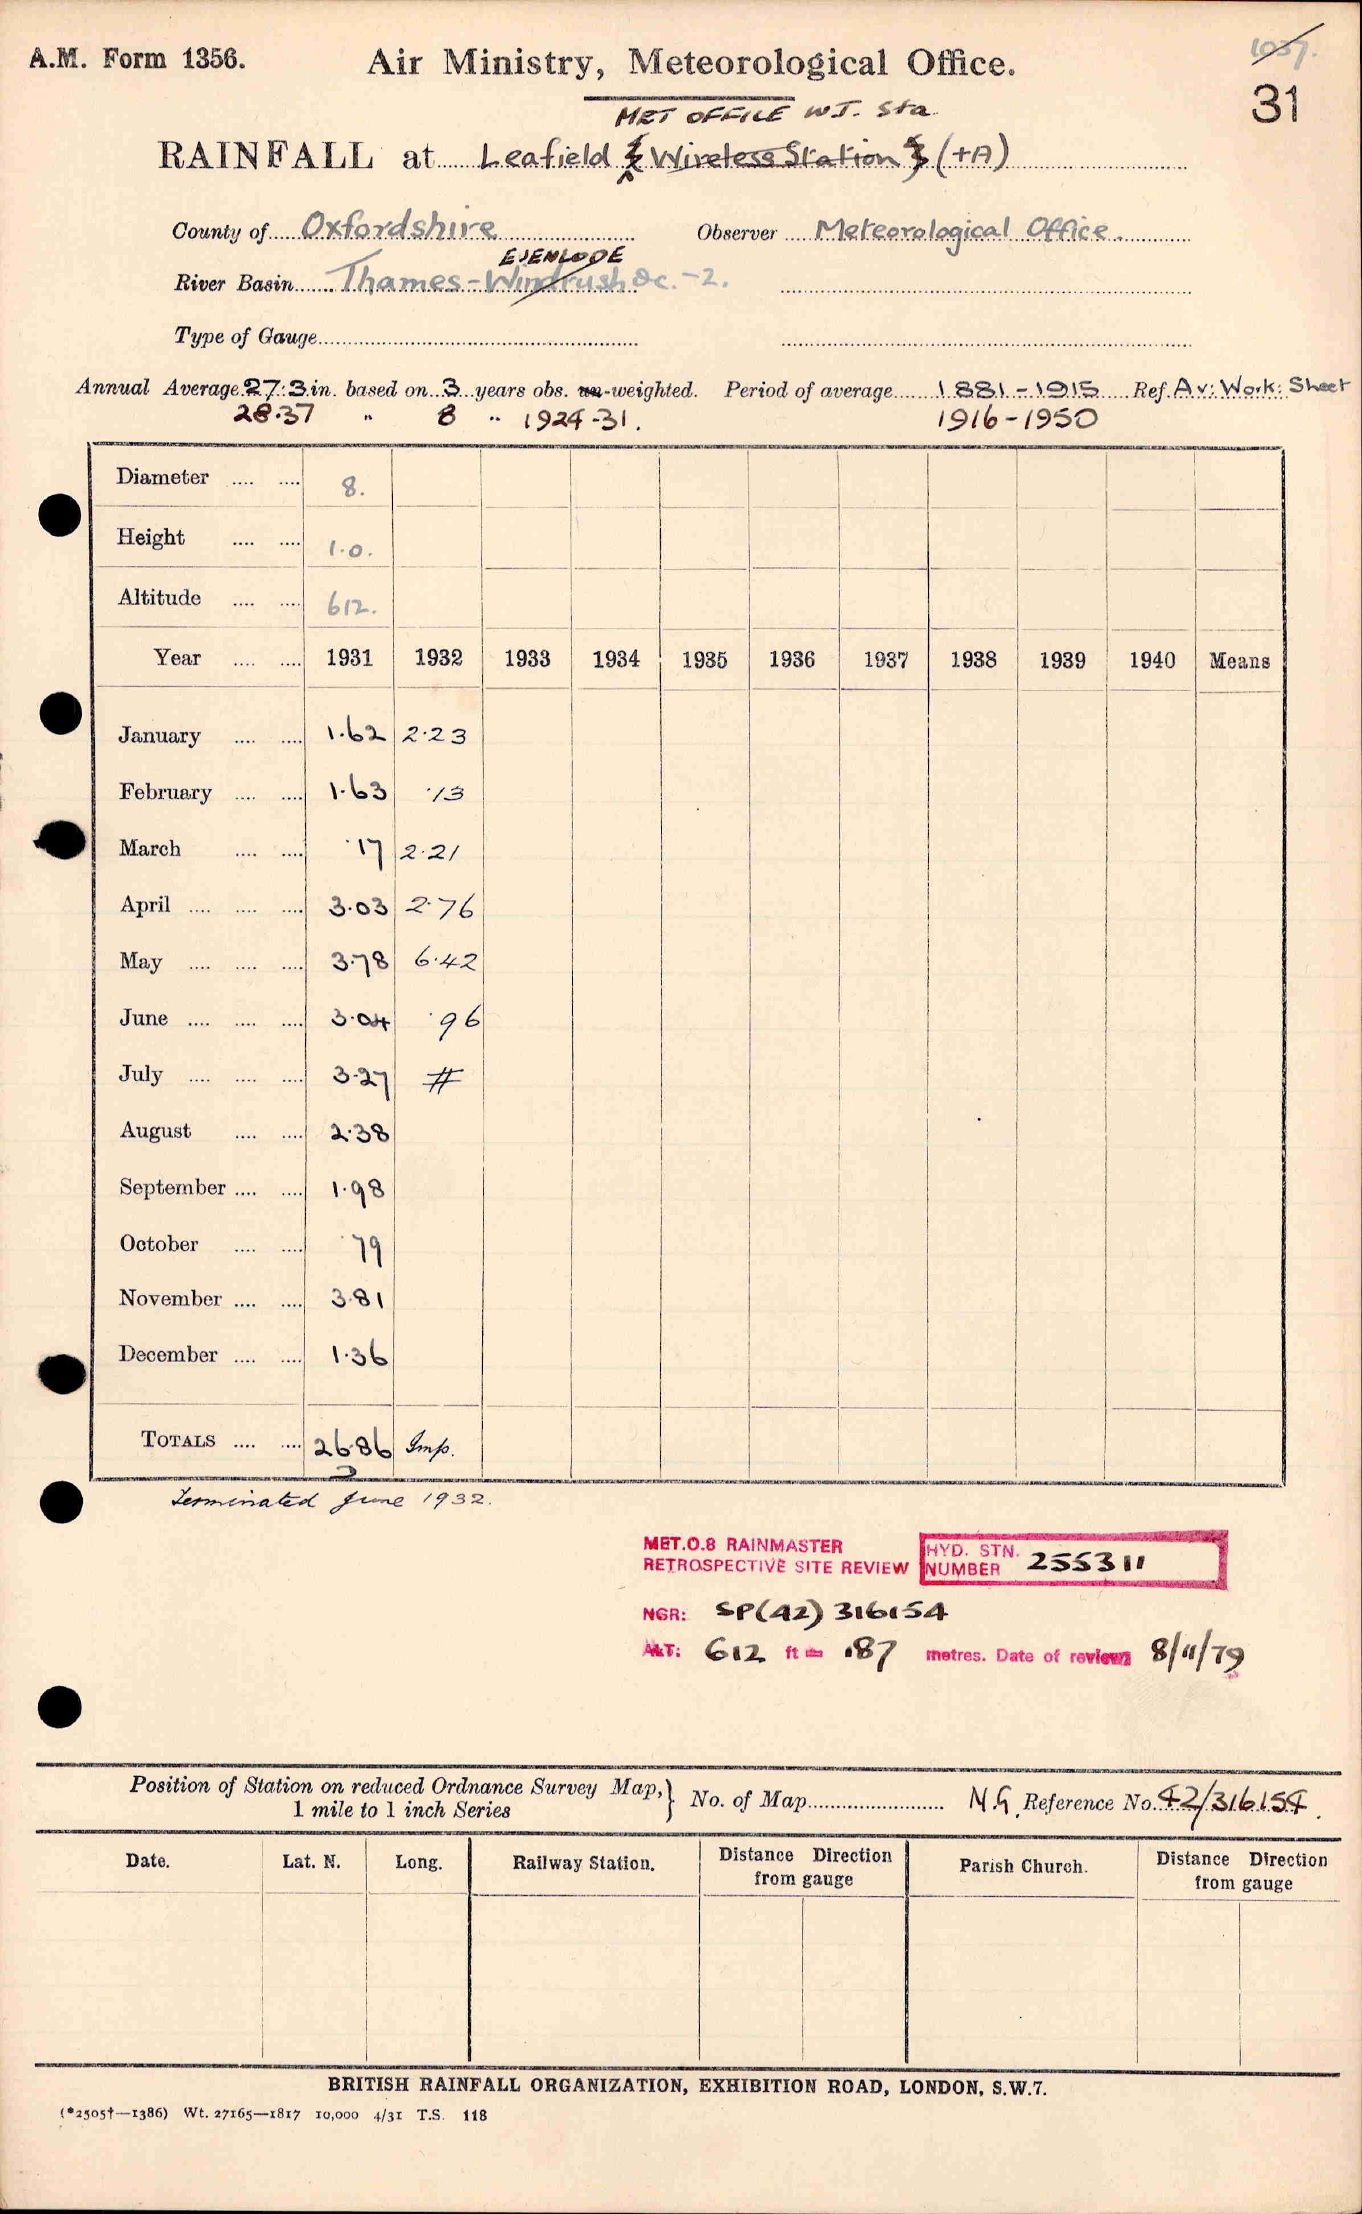 A.M. Form 1356.
Air Ministry, Meteorological Office.
1037.
31
MET OFFICE W.T. Sta.
RAINFALL at Leafield { Wireless Station } (+A)
County of Oxfordshire Observer Meteorological Office.
EVENLODE
River Basin Thames-Windrush &c.-2.
Type of Gauge
Annual Average 27.3 in. based on 3 years obs. un-weighted. Period of average 1881-1915 Ref. Av: Work: Sheet
28.37 " 8 " 1924-31. 1916-1950
Diameter 8.
Height 1.0.
Altitude 612.
Year 1931 1932 1933 1934 1935 1936 1937 1938 1939 1940 Means
January 1.62 2.23
February 1.63 .13
March .17 2.21
April 3.03 2.76
May 3.78 6.42
June 3.04 .96
July 3.27 #
August 2.38
September 1.98
October .79
November 3.81
December 1.36
TOTALS 26.86 Imp.
Terminated June 1932.
MET.O.8 RAINMASTER
RETROSPECTIVE SITE REVIEW
HYD. STN. NUMBER 255311
NGR: SP(42) 316154
ALT: 612 ft = 187 metres. Date of review 8/11/79
Position of Station on reduced Ordnance Survey Map, 1 mile to 1 inch Series } No. of Map N.G. Reference No. 42/316154.
Date. Lat. N. Long. Railway Station. Distance Direction from gauge Parish Church. Distance Direction from gauge
BRITISH RAINFALL ORGANIZATION, EXHIBITION ROAD, LONDON, S.W.7.
(*2505†—1386) Wt. 27165—1817 10,000 4/31 T.S. 118